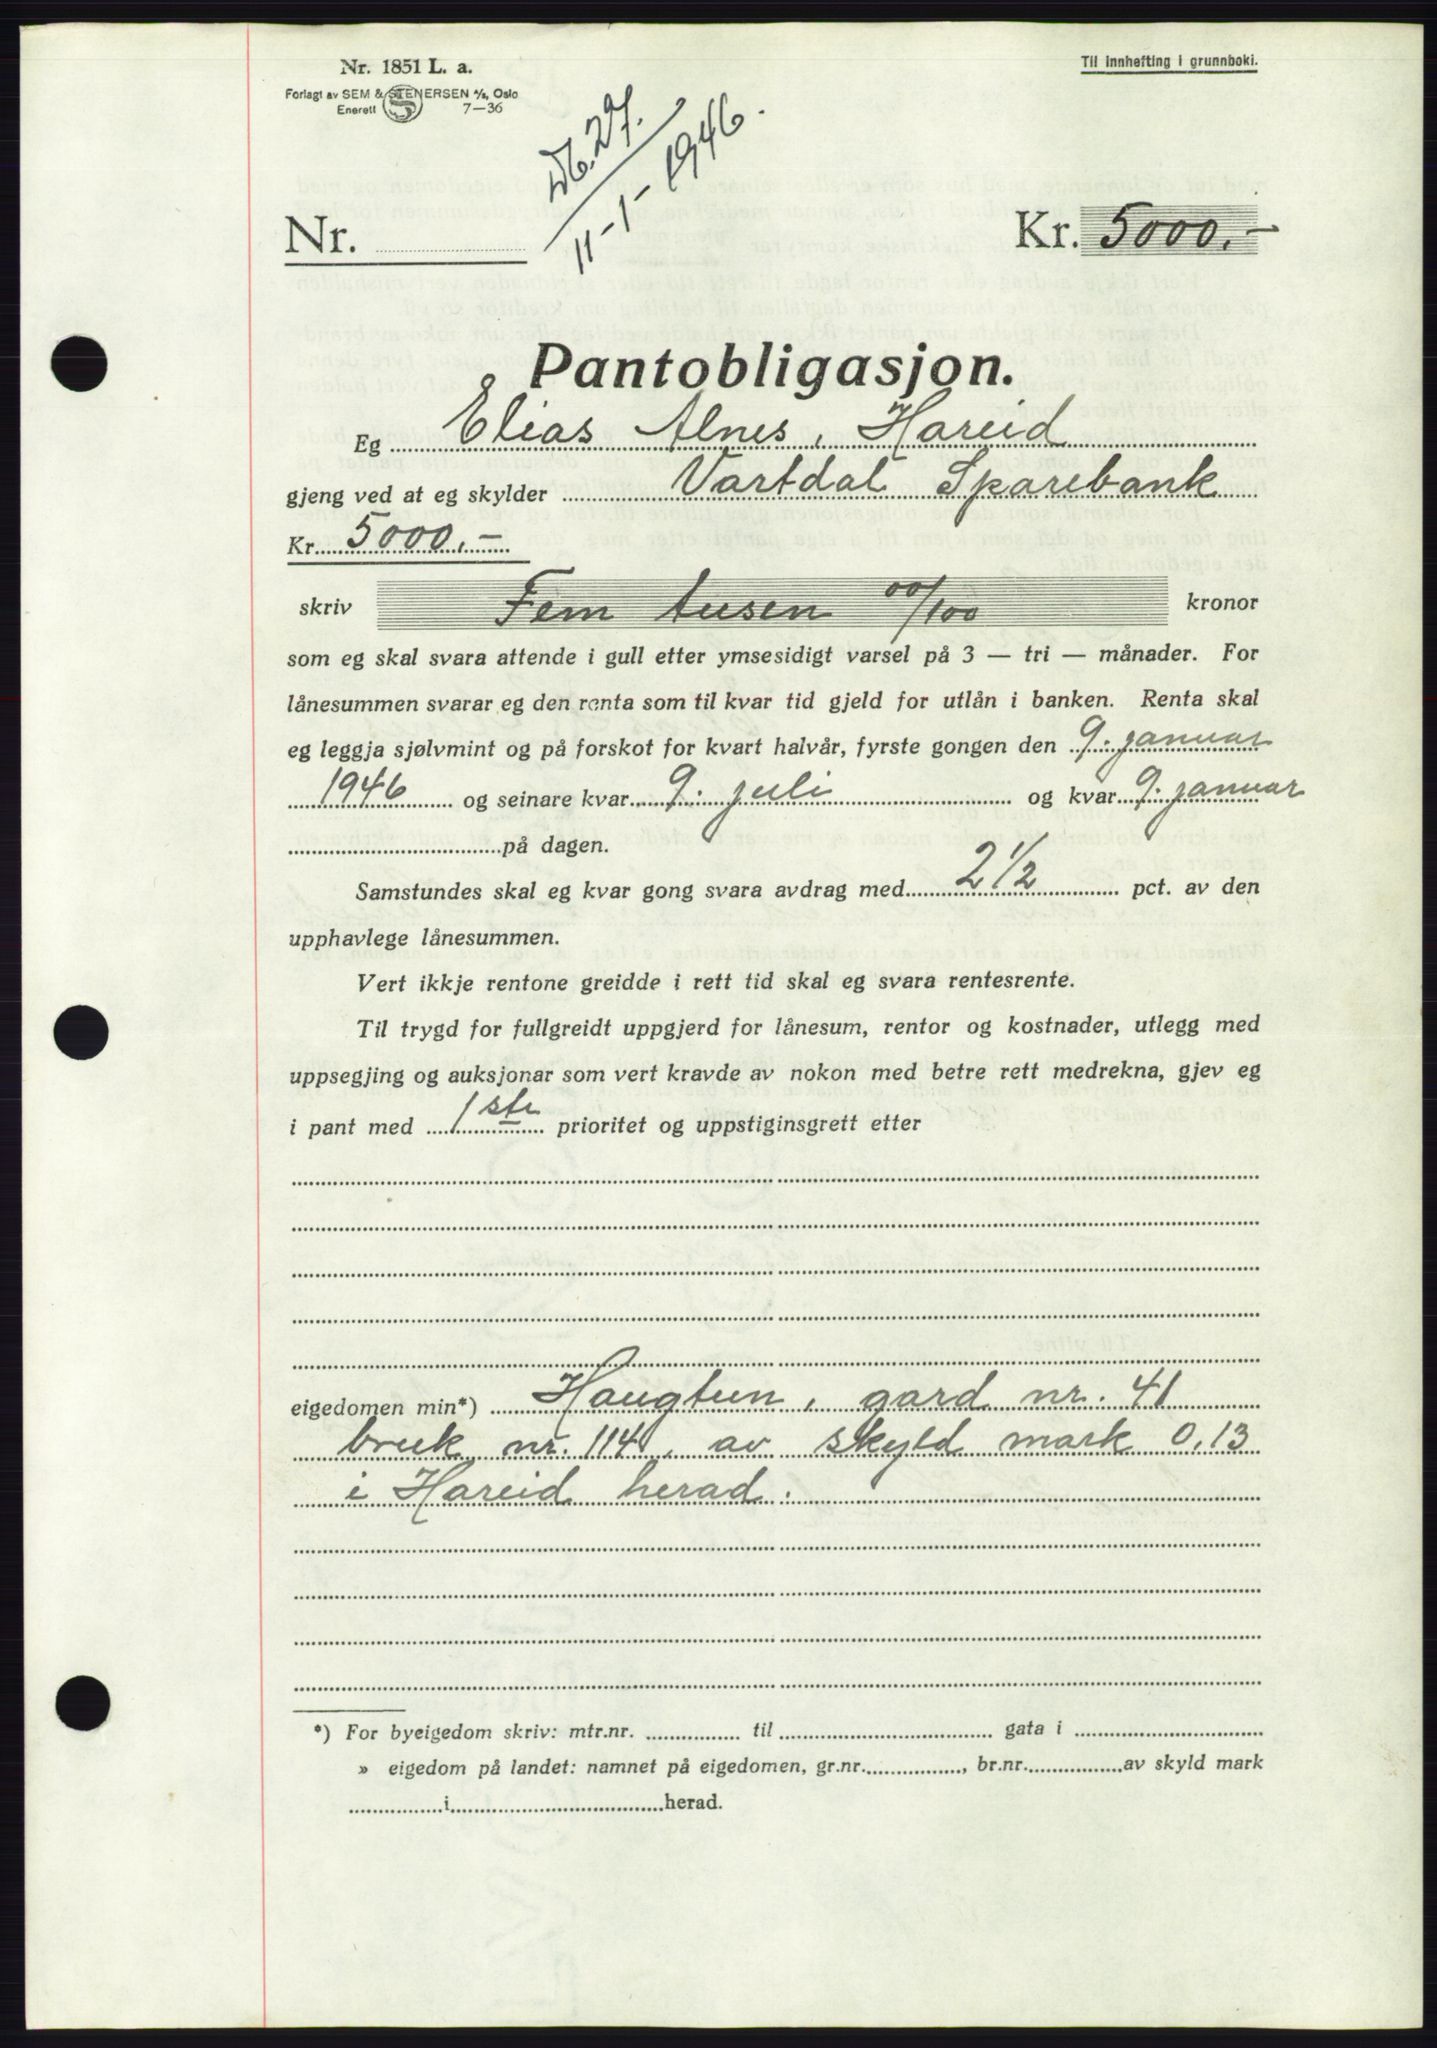 Nr. 1851 L. a.
Til innhefting i grunnboki.
Forlagt av SEM & STENERSEN A/S, Oslo
Enerett 7—36
Db. 27.
11-1-1946.
Nr.
Kr. 5000.-
Pantobligasjon.
Eg Elias Alnes, Hareid
gjeng ved at eg skylder Vartdal Sparebank
Kr. 5000.-
skriv Fem tusen 00/100 kronor
som eg skal svara attende i gull etter ymsesidigt varsel på 3 — tri — månader. For
lånesummen svarar eg den renta som til kvar tid gjeld for utlån i banken. Renta skal
eg leggja sjølvmint og på forskot for kvart halvår, fyrste gongen den 9. januar
1946 og seinare kvar 9. juli og kvar 9. januar
på dagen.
Samstundes skal eg kvar gong svara avdrag med 2 1/2 pct. av den
upphavlege lånesummen.
Vert ikkje rentone greidde i rett tid skal eg svara rentesrente.
Til trygd for fullgreidt uppgjerd for lånesum, rentor og kostnader, utlegg med
uppsegjing og auksjonar som vert kravde av nokon med betre rett medrekna, gjev eg
i pant med 1ste prioritet og uppstiginsgrett etter
eigedomen min*) Haugtun, gard nr. 41
bruk nr. 114, av skyld mark 0,13
i Hareid herad.
*) For byeigedom skriv: mtr.nr. til gata i
» eigedom på landet: namnet på eigedomen, gr.nr. , br.nr. av skyld mark
i herad.